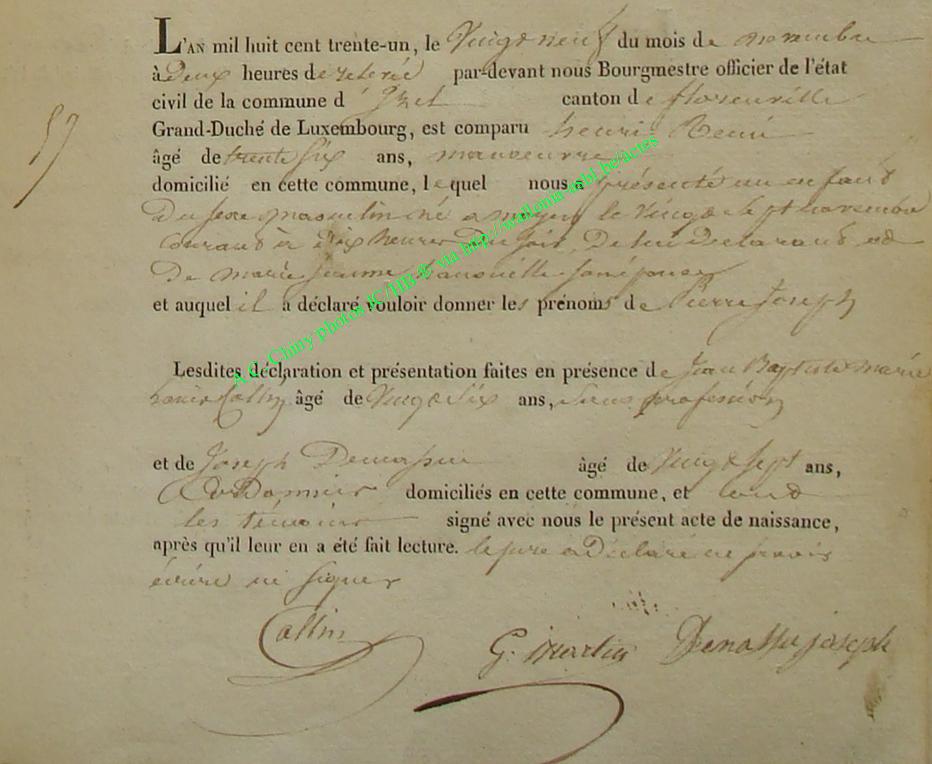 L'AN mil huit cent trente-un, le Vingt neuf du mois de novembre
à Deux heures de relevée par-devant nous Bourgmestre officier de l'état
civil de la commune d'Izel canton de florenville
57
Grand-Duché de Luxembourg, est comparu henri René
âgé de trente six ans, manoeuvre
domicilié en cette commune, lequel nous a présenté un enfant
Du sexe masculin né a moyen le Vingt sept novembre
Courant à dix heures Du soir, De lui Déclarant, et
De marie jeanne son épouse
et auquel il a déclaré vouloir donner les prénoms de Pierre Joseph
Lesdites déclaration et présentation faites en présence de Jean Baptiste marie
Louis Collin âgé de Vingt Six ans, sans profession
et de Joseph Demassu âgé de Vingt Sept ans,
Cordonnier domiciliés en cette commune, et ont
les témoins signé avec nous le présent acte de naissance,
après qu'il leur en a été fait lecture. le père a Déclaré ne savoir
écrire ni signer
Collin G. Martin Demassu joseph
A.C. Chiny photos (C) HB ® via http://wallonia-asbl.be/actes